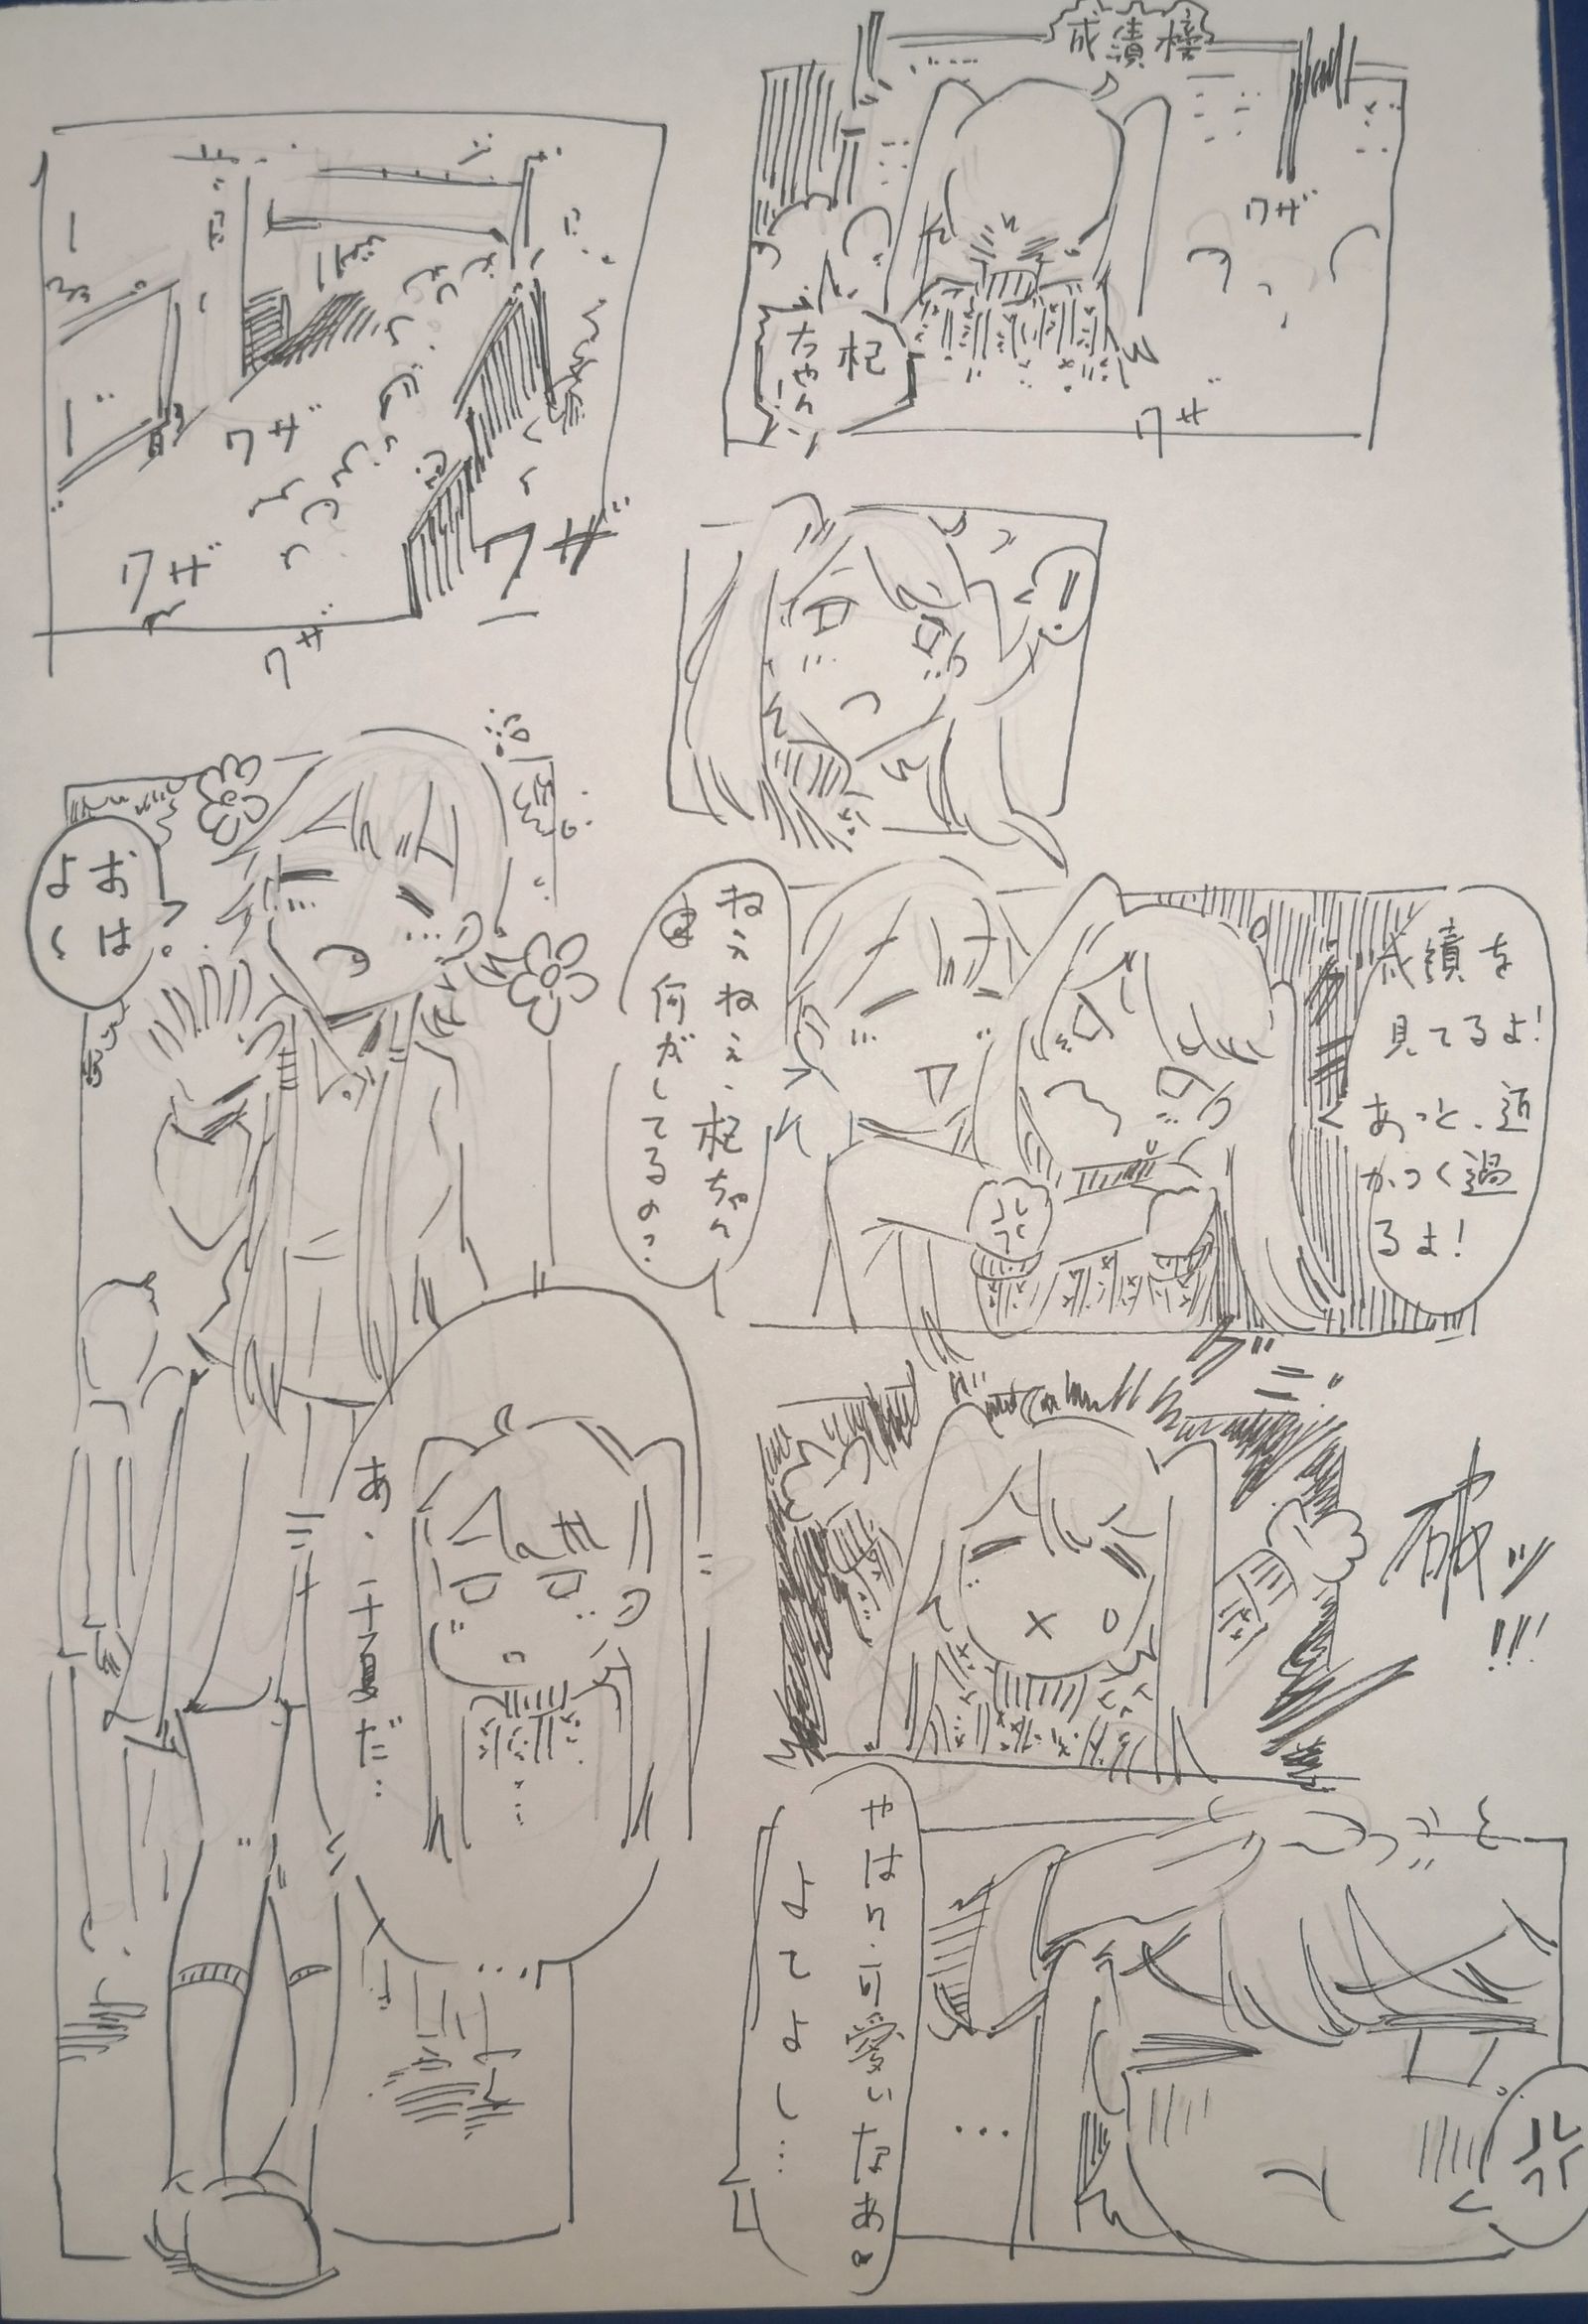 成績榜
ワザ
ワザ
杞
ちゃん!
!
成績を
見てるよ!
あっと、近
かつく過
るよ!
ねえねえ、杞ちゃん
何がしてるの?
破ッ
!!!
やはり、可愛いなあ。
よてよし…
…
ワザ
ワザ
ワザ
ワザ
おは
よ〜
だ…